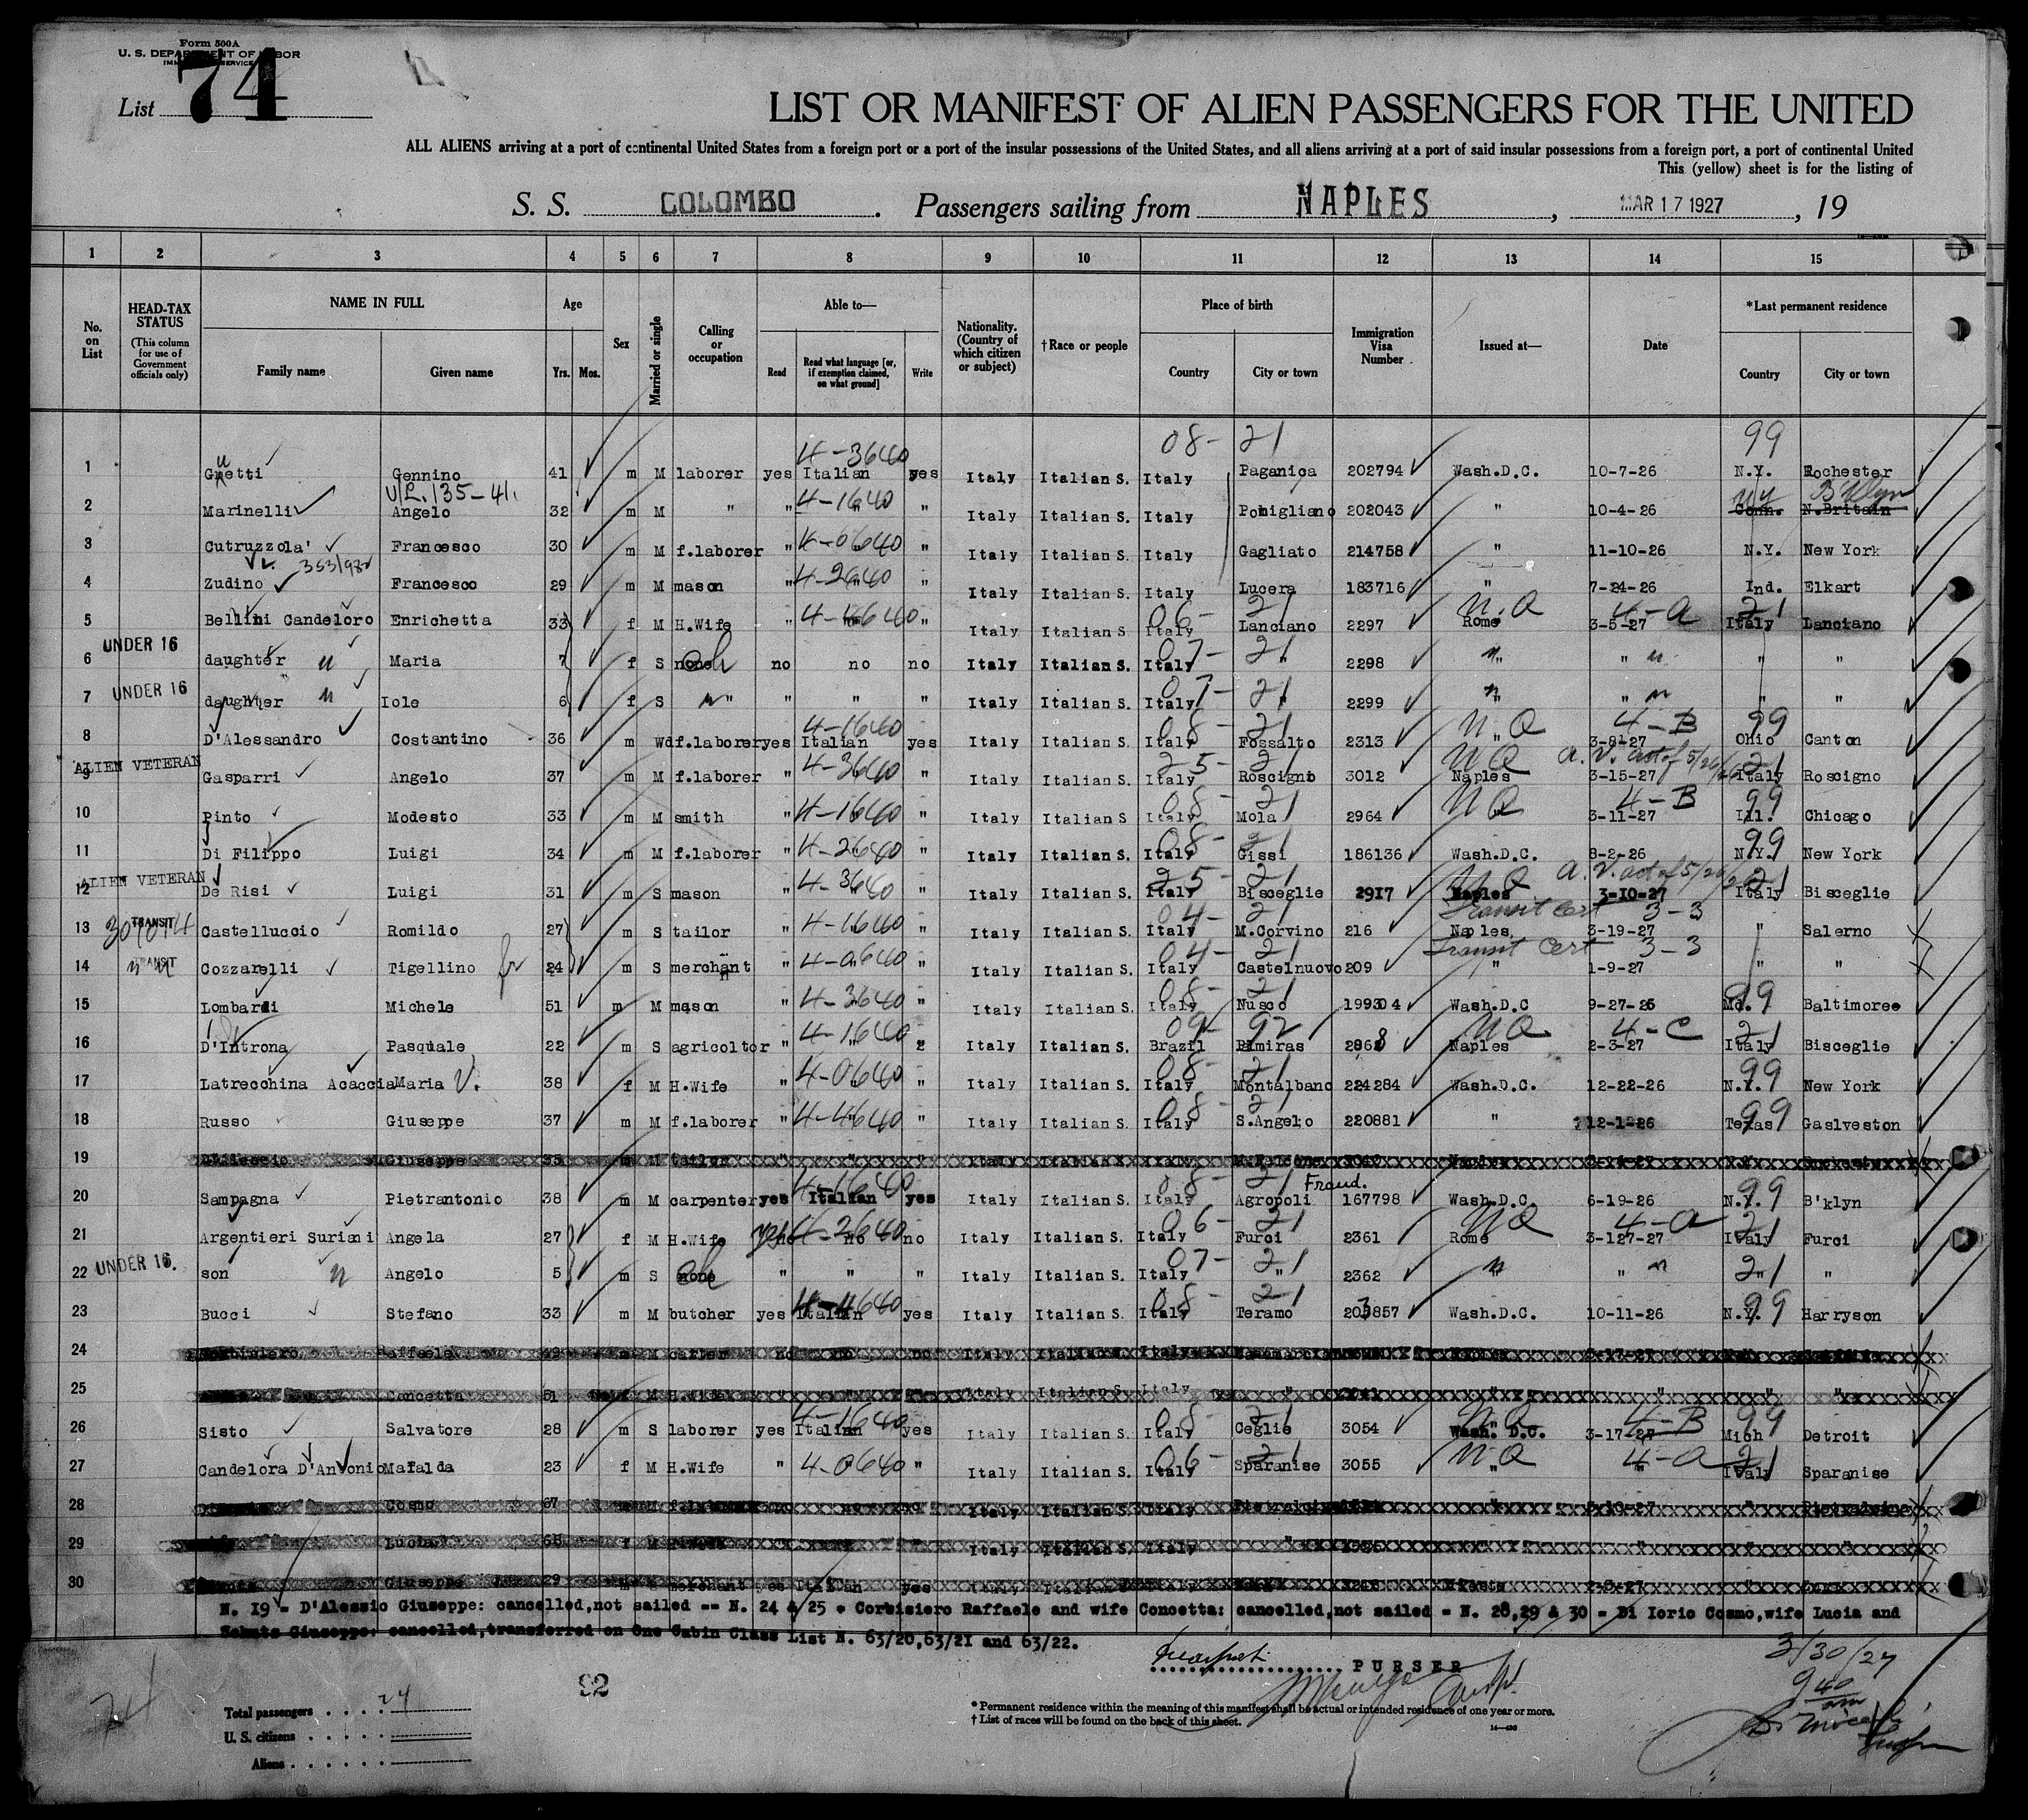 Form 500A
U. S. DEPARTMENT OF LABOR
IMMIGRATION SERVICE
List 74
LIST OR MANIFEST OF ALIEN PASSENGERS FOR THE UNITED
ALL ALIENS arriving at a port of continental United States from a foreign port or a port of the insular possessions of the United States, and all aliens arriving at a port of said insular possessions from a foreign port, a port of continental United
This (yellow) sheet is for the listing of
S. S. COLOMBO. Passengers sailing from NAPLES, MAR 17 1927, 19
1 2 3 4 5 6 7 8 9 10 11 12 13 14 15
No. on List
HEAD-TAX STATUS (This column for use of Government officials only)
NAME IN FULL Family name Given name
Age Yrs. Mos.
Sex
Married or single
Calling or occupation
Able to— Read Read what language [or, if exemption claimed, on what ground] Write
Nationality. (Country of which citizen or subject)
†Race or people
Place of birth Country City or town
Immigration Visa Number
Issued at—
Date
*Last permanent residence Country City or town
08- 21 99
1 Guetti Gennino 41 m M laborer yes Italian 4-3640 yes Italy Italian S. Italy Paganica 202794 Wash.D.C. 10-7-26 N.Y. Rochester
2 Marinelli Angelo 32 m M " " 4-1640 " Italy Italian S. Italy Pomigliano 202043 " 10-4-26 Conn. N.Britain NY B'klyn
3 Cutruzzola' Francesco 30 m M f.laborer " " Italy Italian S. Italy Gagliato 214758 " 11-10-26 N.Y. New York
4 Zudino Francesco 29 m M mason " 4-2640 " Italy Italian S. Italy Lucera 183716 " 7-24-26 Ind. Elkart
5 Bellini Candeloro Enrichetta 33 f M H.Wife " " Italy Italian S. Italy 06- 21 Lanciano 2297 N.Q Rome 4-a 3-5-27 21 Italy Lanciano
UNDER 16
6 daughter Maria 7 f S none no no no Italy Italian S. Italy 07- 21 " 2298 " " " "
7 UNDER 16 daughter Iole 6 f S " " " " Italy Italian S. Italy 07- 21 " 2299 " " " "
8 D'Alessandro Costantino 36 m Wd f.laborer yes Italian 4-1640 yes Italy Italian S. Italy 08- 21 Fossalto 2313 NQ " 4-B 3-8-27 99 Ohio Canton
ALIEN VETERAN
9 Gasparri Angelo 37 m M f.laborer " 4-3640 " Italy Italian S. Italy 25- 21 Roscigno 3012 NQ Naples a.V. act of 5/26/26 3-15-27 21 Italy Roscigno
10 Pinto Modesto 33 m M smith " 4-1640 " Italy Italian S Italy 08- 21 Mola 2964 NQ 4-B 3-11-27 99 Ill. Chicago
11 Di Filippo Luigi 34 m M f.laborer " 4-2640 " Italy Italian S. Italy 08- 21 Gissi 186136 Wash.D.C. 8-2-26 99 N.Y. New York
ALIEN VETERAN
12 De Risi Luigi 31 m S mason " 4-3640 " Italy Italian S. Italy 25- 21 Bisceglie 2917 NQ Naples a.V. act of 5/26/26 3-10-27 21 Italy Bisceglie
13 TRANSIT Castelluccio Romildo 27 m S tailor " 4-1640 " Italy Italian S. Italy 04- 21 M.Corvino 216 Transit Cert Naples 3-3 3-19-27 " Salerno
14 TRANSIT Cozzarelli Tigellino 24 m S merchant " 4-0640 " Italy Italian S. Italy 04- 21 Castelnuovo 209 Transit Cert " 3-3 1-9-27 " "
15 Lombardi Michele 51 m M mason " 4-3640 " Italy Italian S. Italy 08- 21 Nusco 199304 Wash.D.C 9-27-26 99 Md. Baltimoree
16 D'Introna Pasquale 22 m S agricoltor " 4-1640 " Italy Italian S. Brazil 09- 92 2868 NQ Naples 4-C 2-3-27 21 Italy Bisceglie
17 Latrecchina Acaccia Maria V. 38 f M H.Wife " 4-0640 " Italy Italian S. Italy 08- 21 Montalbano 224284 Wash.D.C. 12-22-26 99 N.Y. New York
18 Russo Giuseppe 37 m M f.laborer " 4-4640 " Italy Italian S. Italy 08- 21 S.Angelo 220881 " 12-1-26 99 Texas Gaslveston
19 Giuseppe 35 m M tailor " " " Italy Italian
20 Sampagna Pietrantonio 38 m M carpenter yes Italian 4-1640 yes Italy Italian S. Italy 08- 21 Fraud. Agropoli 167798 Wash.D.C. 6-19-26 99 N.Y. B'klyn
21 Argentieri Suriani Angela 27 f M H.Wife no 4-2640 no no Italy Italian S. Italy 06- 21 Furci 2361 NQ Rome 4-a 3-127-27 21 Italy Furci
22 UNDER 16. son Angelo 5 m S none " " " Italy Italian S. Italy 07- 21 " 2362 " " 21 " "
23 Bucci Stefano 33 m M butcher yes Italian 4-4640 yes Italy Italian S. Italy 08- 21 Teramo 203857 Wash.D.C. 10-11-26 99 N.Y. Harryson
24 Raffaele 49 m M carter no no no Italy Italian S. Italy
25 Concetta 51 f M H.Wife " " " Italy Italian S. Italy "
26 Sisto Salvatore 28 m S laborer yes Italian 4-1640 yes Italy Italian S. Italy 08- 21 Ceglie 3054 NQ Wash. D.C. 4-B 3-17-27 99 Mich Detroit
27 Candelora D'Antonio Mafalda 23 f M H.Wife " 4-0640 " Italy Italian S. Italy 06- 21 Sparanise 3055 NQ " 4-a " 21 Italy Sparanise
28 Cosmo 67 M no no no Italy Italian S. Italy
29 Lucia 68 f M Italy Italian S. Italy "
30 Giuseppe 29 m merchant yes Italian yes
N. 19 - D'Alessio Giuseppe: cancelled,not sailed -- N. 24 & 25 - Corbisiero Raffaele and wife Concetta: cancelled,not sailed - N. 28,29 & 30 - Di Iorio Cosmo,wife Lucia and
Giuseppe: cancelled,transferred on One Cabin Class List N. 63/20,63/21 and 63/22.
PURSER
3/30/27
9 40 am
92
74
Total passengers 24
U. S. citizens
Aliens
* Permanent residence within the meaning of this manifest shall be actual or intended residence of one year or more.
† List of races will be found on the back of this sheet.